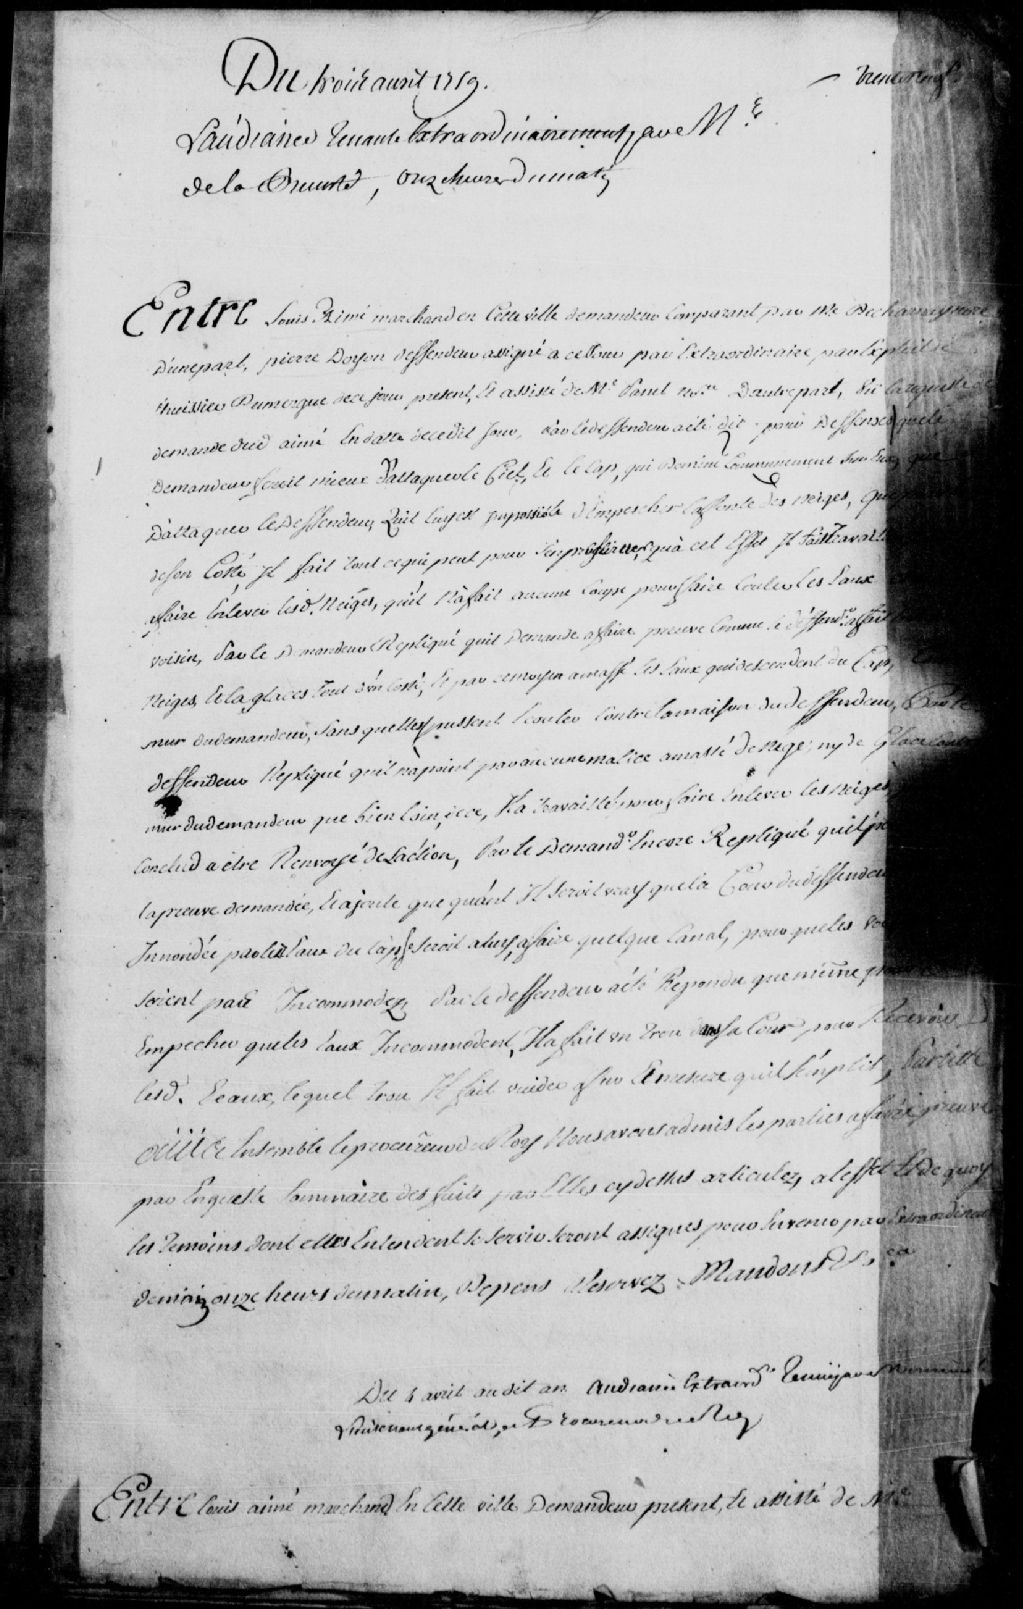 Du troisé avril 1759.
L'audiance Tenante Extraordinairement par Mr
de la , onze heures du matin
Entre Louis Aimé marchand en Cette ville demandeur Comparant par Me
D'une part, pierre Doyon deffendeur assigné a ce Jour par Extraordinaire par Exploit de
huissier Dumergue de ce jour present, Et assisté de Me Panet nore D'autre part, Vû la requeste de
demande dud aimé En datte de ce dit Jour, Par le deffendeur a été dit pour Deffenses que le
Demandeur feroit mieux D'attaquer le Ciel, Et le Cap, qui Domine Communement Sur Eux que
D'attaquer le Deffendeur, Qu'il luy est impossible d'Empescher la fonte des neiges, que
de son Costé Il fait Tout ce qui peut pour qu'à cet Effet Il fait Travailler
affaire Enlever lesd. Neiges, qu'il N'a fait aucune pour faire Couler les Eaux
voisin, Par le Demandeur Repliqué quil Demande affaire preuve Comme le deffendr. a fait
Neiges, Et la glaces Tout d'un Costé, Et par ce moyen amassé les Eaux qui descendent du Cap,
mur du demandeur, Sans quelles pussent Ecouler Contre la maison du deffendeur, Par le
deffendeur Repliqué qu'il n'a point par aucune malice amassé de neige, ny de glace Contre
mur du demandeur que bien loin de ce, Il a travaillé pour faire Enlever les neiges,
Conclud a être Renvoyé de L'action, Par le Demandr. Encore Repliqué qu'il
la preuve demandée, Et ajoute que quand Il seroit vray que la Cour du deffendeur
Innondée par les Eaux du Cap Seroit a luy affaire quelque Canal, pour que les
soient pas Incommodez Par le deffendeur a été Repondu que même pour
Empecher que les Eaux Incommodent, Il a fait un trou dans sa Cour pour Recevoir
lesd. Eaux, lequel trou Il fait vuider a mesure qu'il S'emplit, Parties
oüies Ensemble le procureur du Roy Nous avons admis les parties affaire preuve
par Enqueste Sommaire des faits par Elles cy dessus articulez, a l'effet de quoy
les Temoins dont elles Entendent Se Servir Seront assignés pour Survenir par Extraordinaire
demain onze heures du matin, Depens Reservez. Mandons &c.
Du 4 avril au dit an Audiance Extraord. Tenüe par
Lieutenant général, et Procureur du Roy
Entre louis aimé marchand En Cette ville Demandeur present, Et assisté de Me